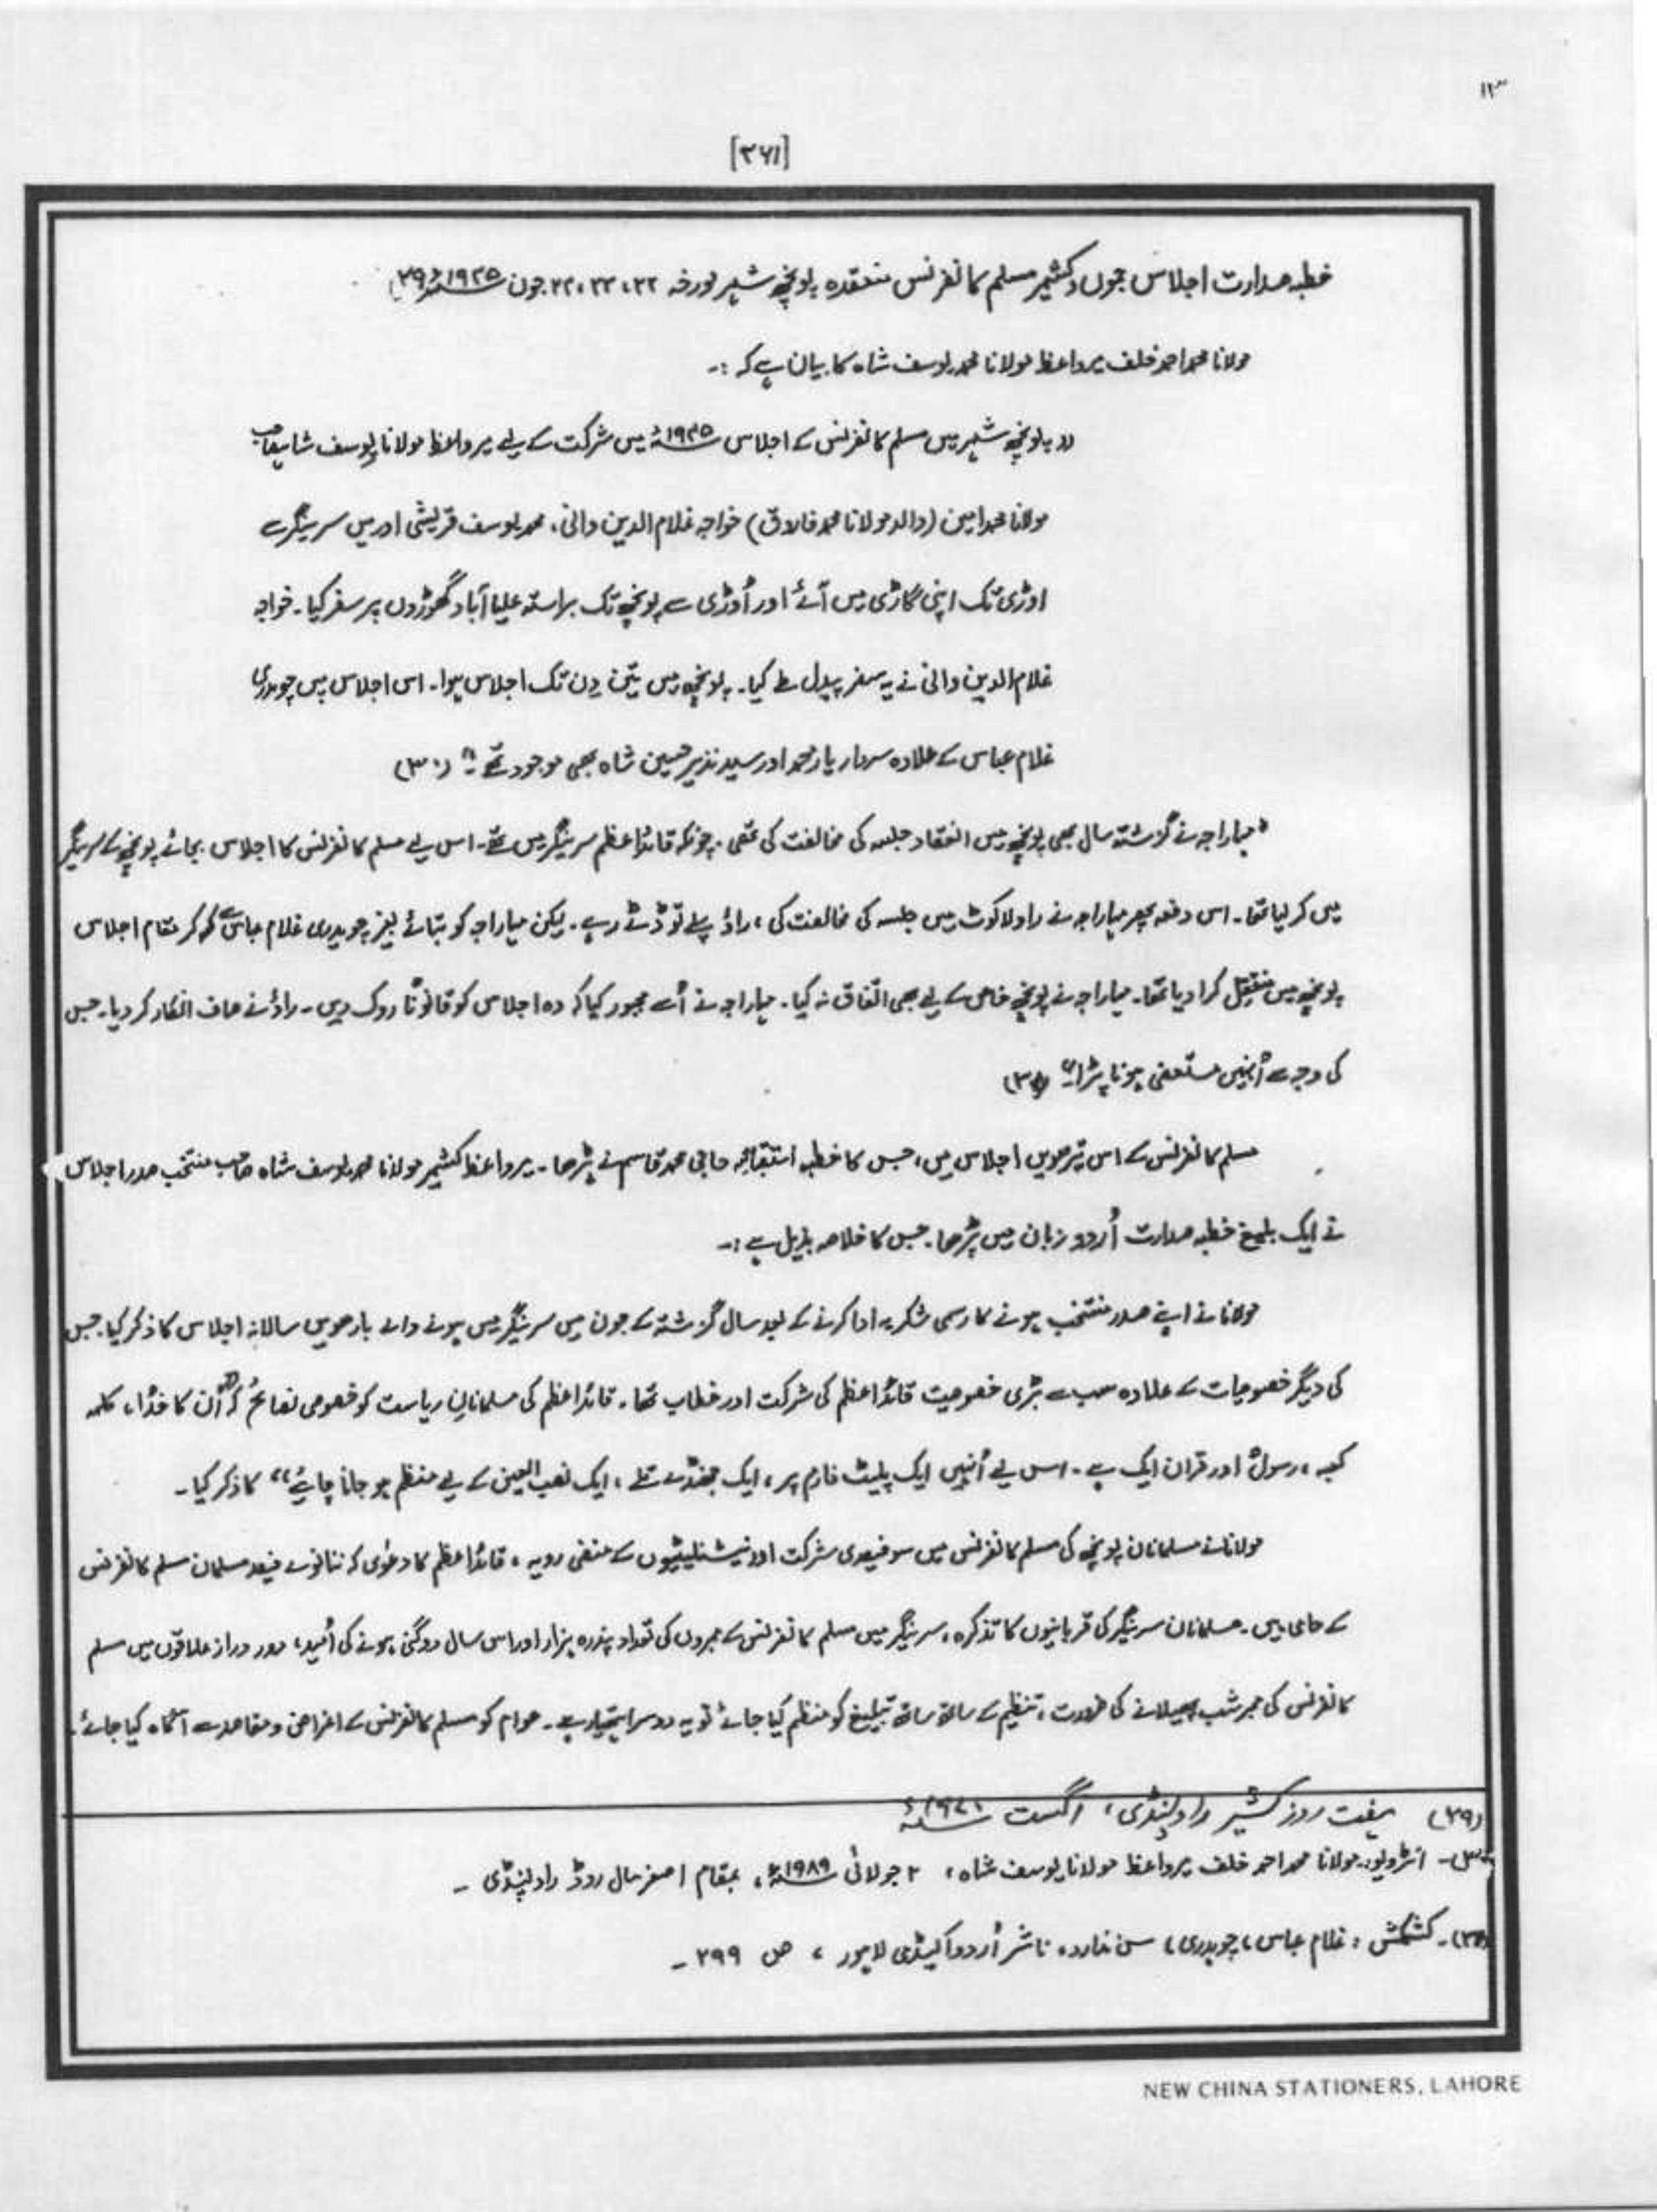 ۱۳
[۳۶۱]
خطبہ صدارت اجلاس جموں و کشمیر مسلم کانفرنس منعقدہ پونچھ شہر مورخہ ۲۲، ۲۳، ۲۴ جون ۱۹۴۵ء (۲۹)
مولانا محمد احمد خلف میر واعظ مولانا محمد یوسف شاہ کا بیان ہے کہ :۔
،، پونچھ شہر میں مسلم کانفرنس کے اجلاس ۱۹۴۵ء میں شرکت کے لیے میر واعظ مولانا یوسف شاہ صاحب
مولانا محمد امین (والد مولانا محمد فاروق) خواجہ غلام الدین وانی، محمد یوسف قریشی اور میں سرینگر سے
اوڑی تک اپنی گاڑی میں آئے اور اُوڑی سے پونچھ تک براستہ علیا آباد گھوڑوں پر سفر کیا۔ خواجہ
غلام الدین وانی نے یہ سفر پیدل طے کیا۔ پونچھ میں تین دن تک اجلاس ہوا۔ اس اجلاس میں چوہدری
غلام عباس کے علاوہ سردار یار محمد اور سید نذیر حسین شاہ بھی موجود تھے ۔" (۳۰)
"مہاراجہ نے گزشتہ سال بھی پونچھ میں انعقاد جلسہ کی مخالفت کی تھی۔ چونکہ قائداعظم سرینگر میں تھے۔ اس لیے مسلم کانفرنس کا اجلاس بجائے پونچھ کے سرینگر
میں کر لیا تھا۔ اس دفعہ پھر مہاراجہ نے راولاکوٹ میں جلسہ کی مخالفت کی، راؤ پہلے تو ڈٹے رہے۔ لیکن مہاراجہ کو بتائے بغیر چوہدری غلام عباس سے کہہ کر مقام اجلاس
پونچھ میں منتقل کرا دیا تھا۔ مہاراجہ نے پونچھ خاص کے لیے بھی اتفاق نہ کیا۔ مہاراجہ نے اُسے مجبور کیا کہ وہ اجلاس کو قانوناً روک دیں۔ راؤ نے صاف انکار کر دیا۔ جس
کی وجہ سے اُنہیں مستعفی ہونا پڑا۔" (۳۱)
مسلم کانفرنس کے اس تیرھویں اجلاس میں، جس کا خطبہ استقبالیہ حاجی محمد قاسم نے پڑھا۔ میر واعظ کشمیر مولانا محمد یوسف شاہ صاحب منتخب صدر اجلاس
نے ایک بلیغ خطبہ صدارت اُردو زبان میں پڑھا۔ جس کا خلاصہ بذیل ہے :۔
مولانا نے اپنے صدر منتخب ہونے کا رسمی شکریہ ادا کرنے کے بعد سال گزشتہ کے جون میں سرینگر میں ہونے والے بارھویں سالانہ اجلاس کا ذکر کیا۔ جس
کی دیگر خصوصیات کے علاوہ سب سے بڑی خصوصیت قائداعظم کی شرکت اور خطاب تھا۔ قائداعظم کی مسلمانانِ ریاست کو خصوصی نصائح کہ "اُن کا خدا، کلمہ
کعبہ، رسولؐ اور قران ایک ہے۔ اس لیے اُنہیں ایک پلیٹ فارم پر، ایک جھنڈے تلے، ایک نصب العین کے لیے منظم ہو جانا چاہیئے،، کا ذکر کیا۔
مولانا نے مسلمانان پونچھ کی مسلم کانفرنس میں سو فیصدی شرکت اور نیشنلیشیوں کے منفی رویہ، قائداعظم کا دعوٰی کہ ننانوے فیصد مسلمان مسلم کانفرنس
کے حامی ہیں۔ مسلمانان سرینگر کی قربانیوں کا تذکرہ، سرینگر میں مسلم کانفرنس کے ممبروں کی تعداد پندرہ ہزار اور اس سال دوگنی ہونے کی اُمید، دور دراز علاقوں میں مسلم
کانفرنس کی ممبرشپ پھیلانے کی ضرورت، تنظیم کے ساتھ ساتھ تبلیغ کو منظم کیا جائے تو یہ دوسرا ہتھیار ہے۔ عوام کو مسلم کانفرنس کے اغراض و مقاصد سے آگاہ کیا جائے۔
(۲۹) ہفت روزہ کشیر راولپنڈی، اگست
(۳۰)۔ انٹرویو: مولانا محمد احمد خلف میر واعظ مولانا یوسف شاہ، ۲ جولائی ۱۹۸۹ء، بمقام اصغر مال روڈ راولپنڈی ۔
(۳۱)۔ کشمکش، غلام عباس، چوہدری، سن ندارد، ناشر اُردو اکیڈمی لاہور، ص ۲۹۹ ۔
NEW CHINA STATIONERS, LAHORE